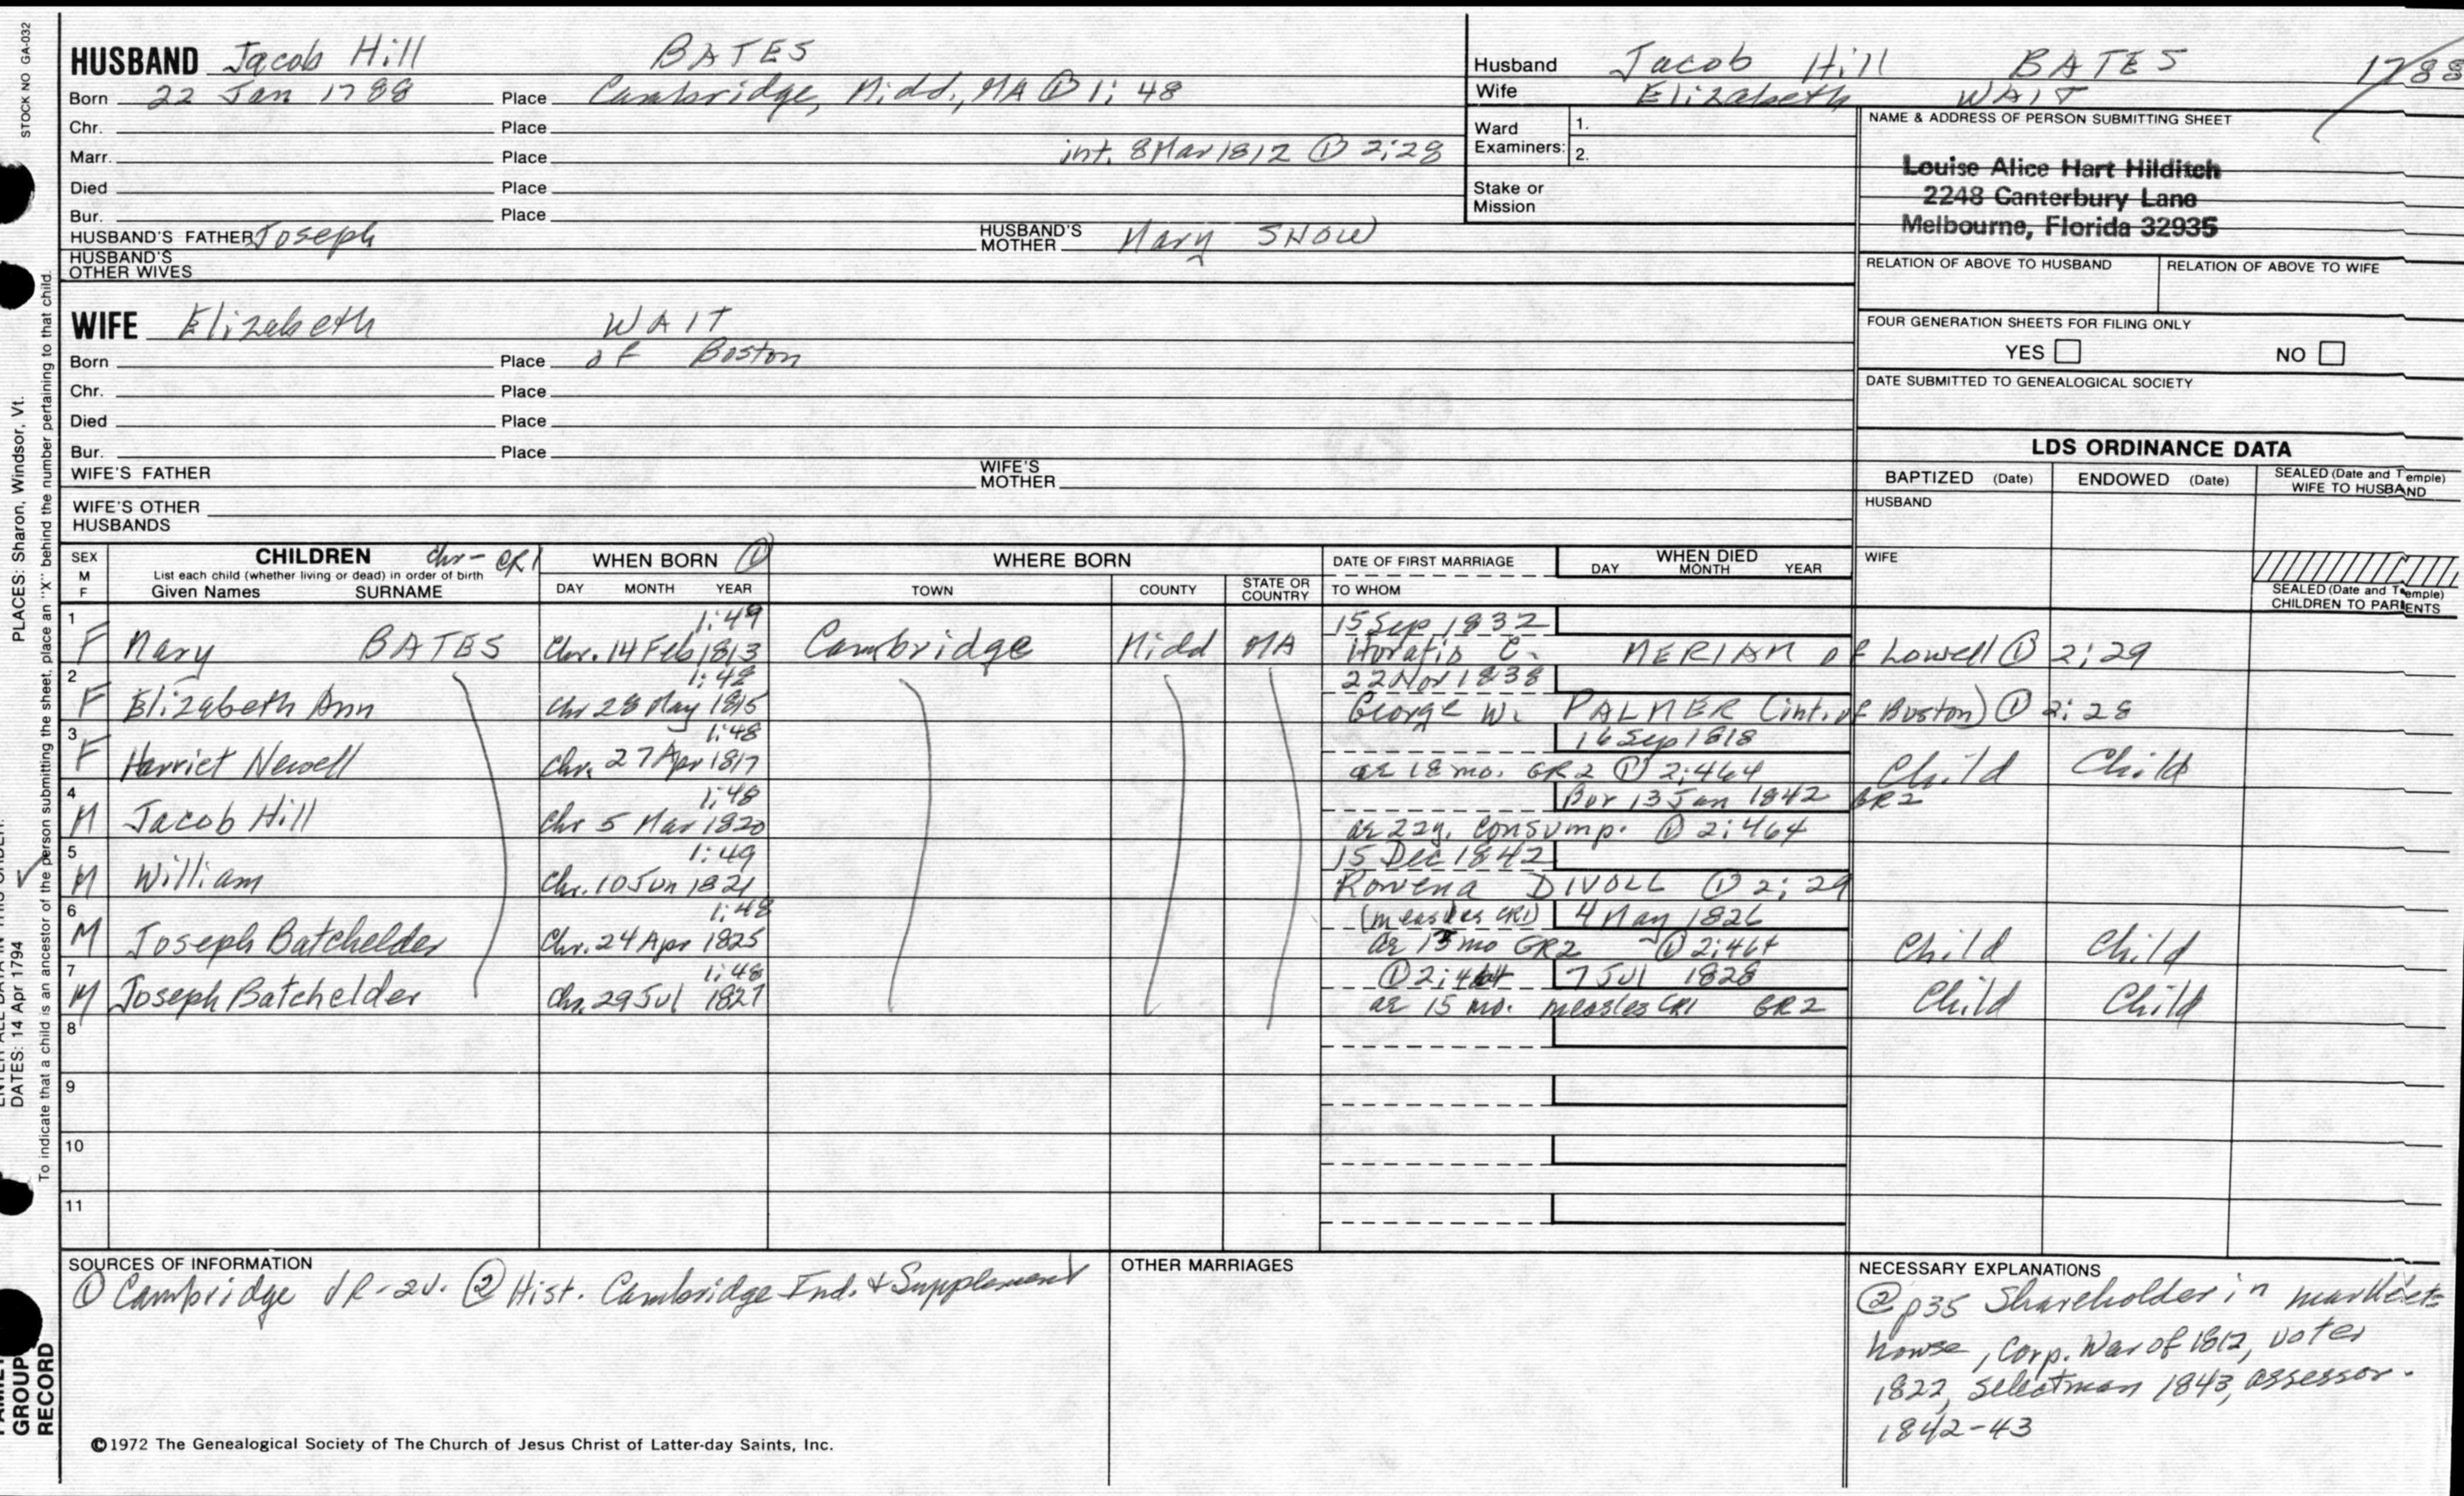 STOCK NO GA-032
HUSBAND Jacob Hill BATES
Born 22 Jan 1788 Place Cambridge, Midd., MA ① 1: 48
Chr. Place
Marr. Place int. 8 Mar 1812 ① 2:28
Died Place
Bur. Place
HUSBAND'S FATHER Joseph HUSBAND'S MOTHER Mary SNOW
HUSBAND'S OTHER WIVES
WIFE Elizabeth WAIT
Born Place of Boston
Chr. Place
Died Place
Bur. Place
WIFE'S FATHER WIFE'S MOTHER
WIFE'S OTHER HUSBANDS
Husband Jacob Hill BATES 1788
Wife Elizabeth WAIT
Ward Examiners: 1.
2.
Stake or Mission
NAME & ADDRESS OF PERSON SUBMITTING SHEET
Louise Alice Hart Hilditch
2248 Canterbury Lane
Melbourne, Florida 32935
RELATION OF ABOVE TO HUSBAND RELATION OF ABOVE TO WIFE
FOUR GENERATION SHEETS FOR FILING ONLY
YES NO
DATE SUBMITTED TO GENEALOGICAL SOCIETY
LDS ORDINANCE DATA
BAPTIZED (Date) ENDOWED (Date) SEALED (Date and Temple) WIFE TO HUSBAND
HUSBAND
WIFE
SEALED (Date and Temple) CHILDREN TO PARENTS
SEX M F
CHILDREN chr - CR1
List each child (whether living or dead) in order of birth
Given Names SURNAME
WHEN BORN ①
DAY MONTH YEAR
WHERE BORN
TOWN COUNTY STATE OR COUNTRY
DATE OF FIRST MARRIAGE
TO WHOM
WHEN DIED
DAY MONTH YEAR
1 1:49 15 Sep 1832
F Mary BATES Chr. 14 Feb 1813 Cambridge Midd MA Horatio C. MERIAM of Lowell ① 2:29
2 1:48 22 Nov 1838
F Elizabeth Ann Chr 28 May 1815 George W. PALMER (int. of Boston) ① 2:28
3 1:48 16 Sep 1818
F Harriet Newell Chr. 27 Apr 1817 ae 18 mo. GR2 ① 2:464 Child Child
4 1:48 Bur 13 Jan 1842 GR2
M Jacob Hill Chr 5 Mar 1820 ae 22y. Consump. ① 2:464
5 1:49 15 Dec 1842
M William Chr. 10 Jun 1821 Rowena DIVOLL ① 2:29
6 1:48 (measles CR1) 4 May 1826
M Joseph Batchelder Chr. 24 Apr 1825 ae 15 mo GR2 ① 2:464 Child Child
7 1:48 ① 2:464 7 Jul 1828
M Joseph Batchelder Chr. 29 Jul 1827 ae 15 mo. measles CR1 GR2 Child Child
8
9
10
11
SOURCES OF INFORMATION
① Cambridge VR-2v. ② Hist. Cambridge Ind. & Supplement
OTHER MARRIAGES
NECESSARY EXPLANATIONS
② p35 Shareholder in market
house, Corp. War of 1812, voter
1822, selectman 1843, assessor.
1842-43
©1972 The Genealogical Society of The Church of Jesus Christ of Latter-day Saints, Inc.
PLACES: Sharon, Windsor, Vt.
DATES: 14 Apr 1794
To indicate that a child is an ancestor of the person submitting the sheet, place an "X" behind the number pertaining to that child.
GROUP
RECORD